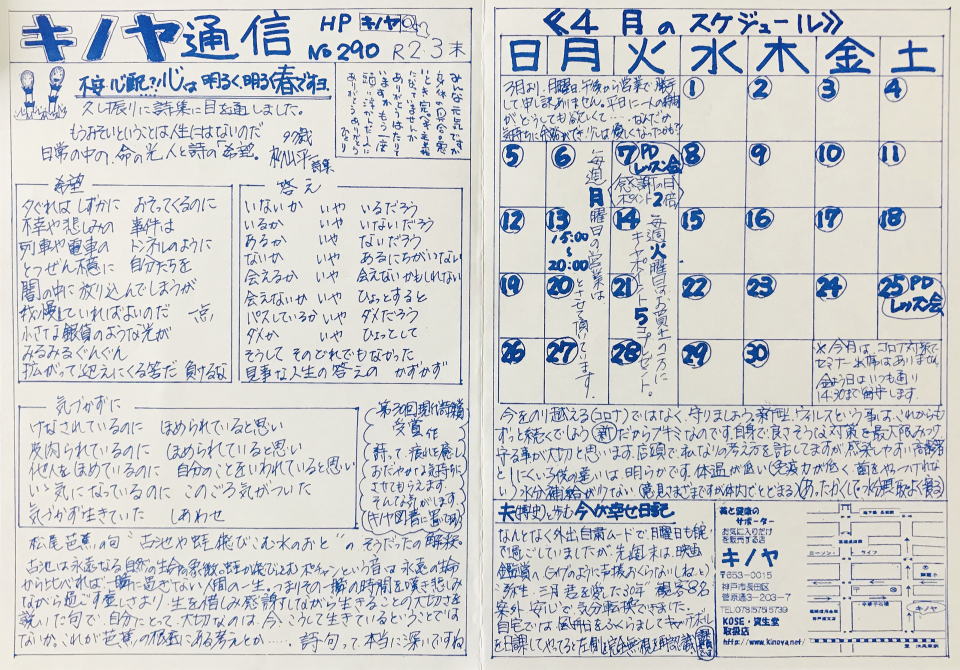 キノヤ通信
HP キノヤ
No290 R2.3末
心は明るく明るく春ですヨ
久し振りに詩集に目を通しました。
もうおそいということは人生にはないのだ
日常の中の、命の光 人と詩の「希望。 杉山平一 詩集
希望
夕ぐれはしずかに おそってくるのに
不幸や悲しみの 事件は
列車や電車の トンネルのように
とつぜん 自分たちを
闇の中に放り込んでしまうが
我慢していればよいのだ 一点
小さな銀貨のような光が
みるみるぐんぐん
拡がって迎えにくる筈だ 負けるな
答え
いないか いや いるだろう
いるか いや いないだろう
あるか いや ないだろう
ないか いや あるにちがいない
会えるか いや 会えないかもしれない
会えないか いや ひょっとすると
パスしているか いや ダメだろう
ダメか いや ひょっとして
そうして そのどれでもなかった
見事な人生の答えの かずかず
気づかずに
けなされているのに ほめられていると思い
皮肉られているのに ほめられていると思い
他人をほめているのに 自分のことをいわれていると思い
いゝ気になっているのに このごろ気がついた
気づかず生きていた しあわせ
第30回現代詩人賞
受賞作
詩って 疲れを癒し
おだやかな気持ちに
させてもらえます
そんな気がします
(キノヤ図書に置いてあり)
松尾芭蕉の句 "古池や蛙飛びこむ水のおと" の そうだったの解釈。
古池は永遠なる自然の生命の象徴。蛙が飛び込む ポチャンという音は永遠の生命
から比べれば一瞬に過ぎない人間の一生。つまりその一瞬の時間を嘆き悲しみ
ながら過ごす虚しさより、生を惜しみ感謝しながら生きることの大切さを
説いた句で、自分にとって、大切なのは、今、こうして生きているということでは
ないか。これが芭蕉の根底にある考えとか…… 詩、句って本当に深いですね
《4月のスケジュール》
日 月 火 水 木 金 土
3月より、日曜日午後から営業で、勝手
して申し訳ありません。平日に一人の時間
がどうしても欲しくて…、なんだか
1 2 3 4
5 6 7 PDレッスン会 8 9 10 11
感謝の日
ポイント2倍
12 13 14 15 16 17 18
15:00
〜
20:00
19 20 21 22 23 24 25 PDレッスン会
26 27 28 29 30
毎週月曜日の営業は
とさせて頂いています。
毎週火曜日はお買上の方に
キノヤポイント5コプレゼント。
※今月は、コロナ対策で
セミナー出席はありません。
金よう日はいつも通り
14:30まで留守します。
今をのり越える(コロナ)ではなく、守りましょう。新型ウィルスという事は、これからも
ずっと続くでしょう 新 だからブキミなのです。自身で、良さそうな対策を最大限みつけ
守る事が大切と思います。店頭で、私なりの考え方を話してますが、感染しやすい高齢者
としにくい子供の違いは 明らかです。体温が低い(免疫力が低く菌をやっつけれな
い)水分補給が少ない(意見さまざまですが体内でとどまる)あったかくして水分摂取よく寝る
夫(博史)と歩む 今が幸せ日記
なんとなく外出自粛ムードで日曜日も館
で過ごしていましたが、先週末は、映画
鑑賞へ(ライブのように声援おくらないしね。と)
弥生、三月 君を愛した30年 観客8名
案外 安心で 気分転換できました。
自宅では、風船をふくらましてキャッチボール
美と健康の
サポーター
お気に入りだけ
を販売する店
キノヤ
〒653-0015
神戸市長田区
菅原通3-203-7
TEL078)575)5739
KOSE・資生堂
取扱店
http://www.kinoya.net/
キノヤ